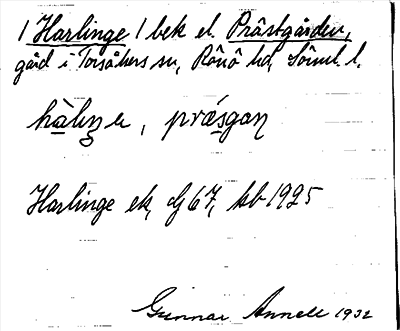 1 Harlinge 1 bek el. Prästgården,
gård i Torsåkers sn, Rönö hd, Söml. l.
hàlıŋe, prǽsgaɳ
Harlinge ek, dj 67, kb 1925
Gunnar Annell 1932